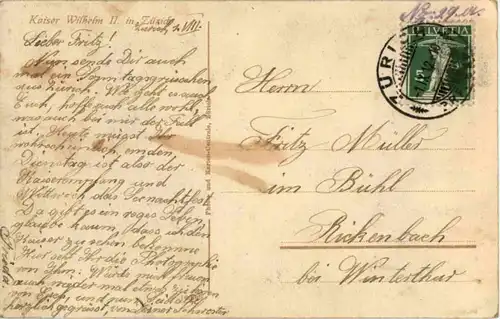 Kaiser Wilhelm II. in Zürich
Zürich, 1. VIII.
Lieber Fritz!
Nun sende Dir auch
mal ein Sonntagsgrüsschen
aus Zürich. Wie geht es auch
Euch, hoffe auch alle wohl,
was auch bei mir der Fall
ist. Heute müsst Ihr
Dienstag ist also der
Kaiserempfang und
Mittwoch das Seenachtfest.
Da gibt es ein reges Leben,
glaube kaum, dass ich den
Kaiser zu sehen bekomme.
Hier seht Ihr die Photographie
von Ihm. Würde mich freuen
auch wieder mal etwas zu hören
von Euch, und nun
herzlich gegrüsst, von Deiner Schwester
Frieda
HELVETIA
ZÜRICH
Herrn
Fritz Müller
im Bühl
Rickenbach
bei Winterthur